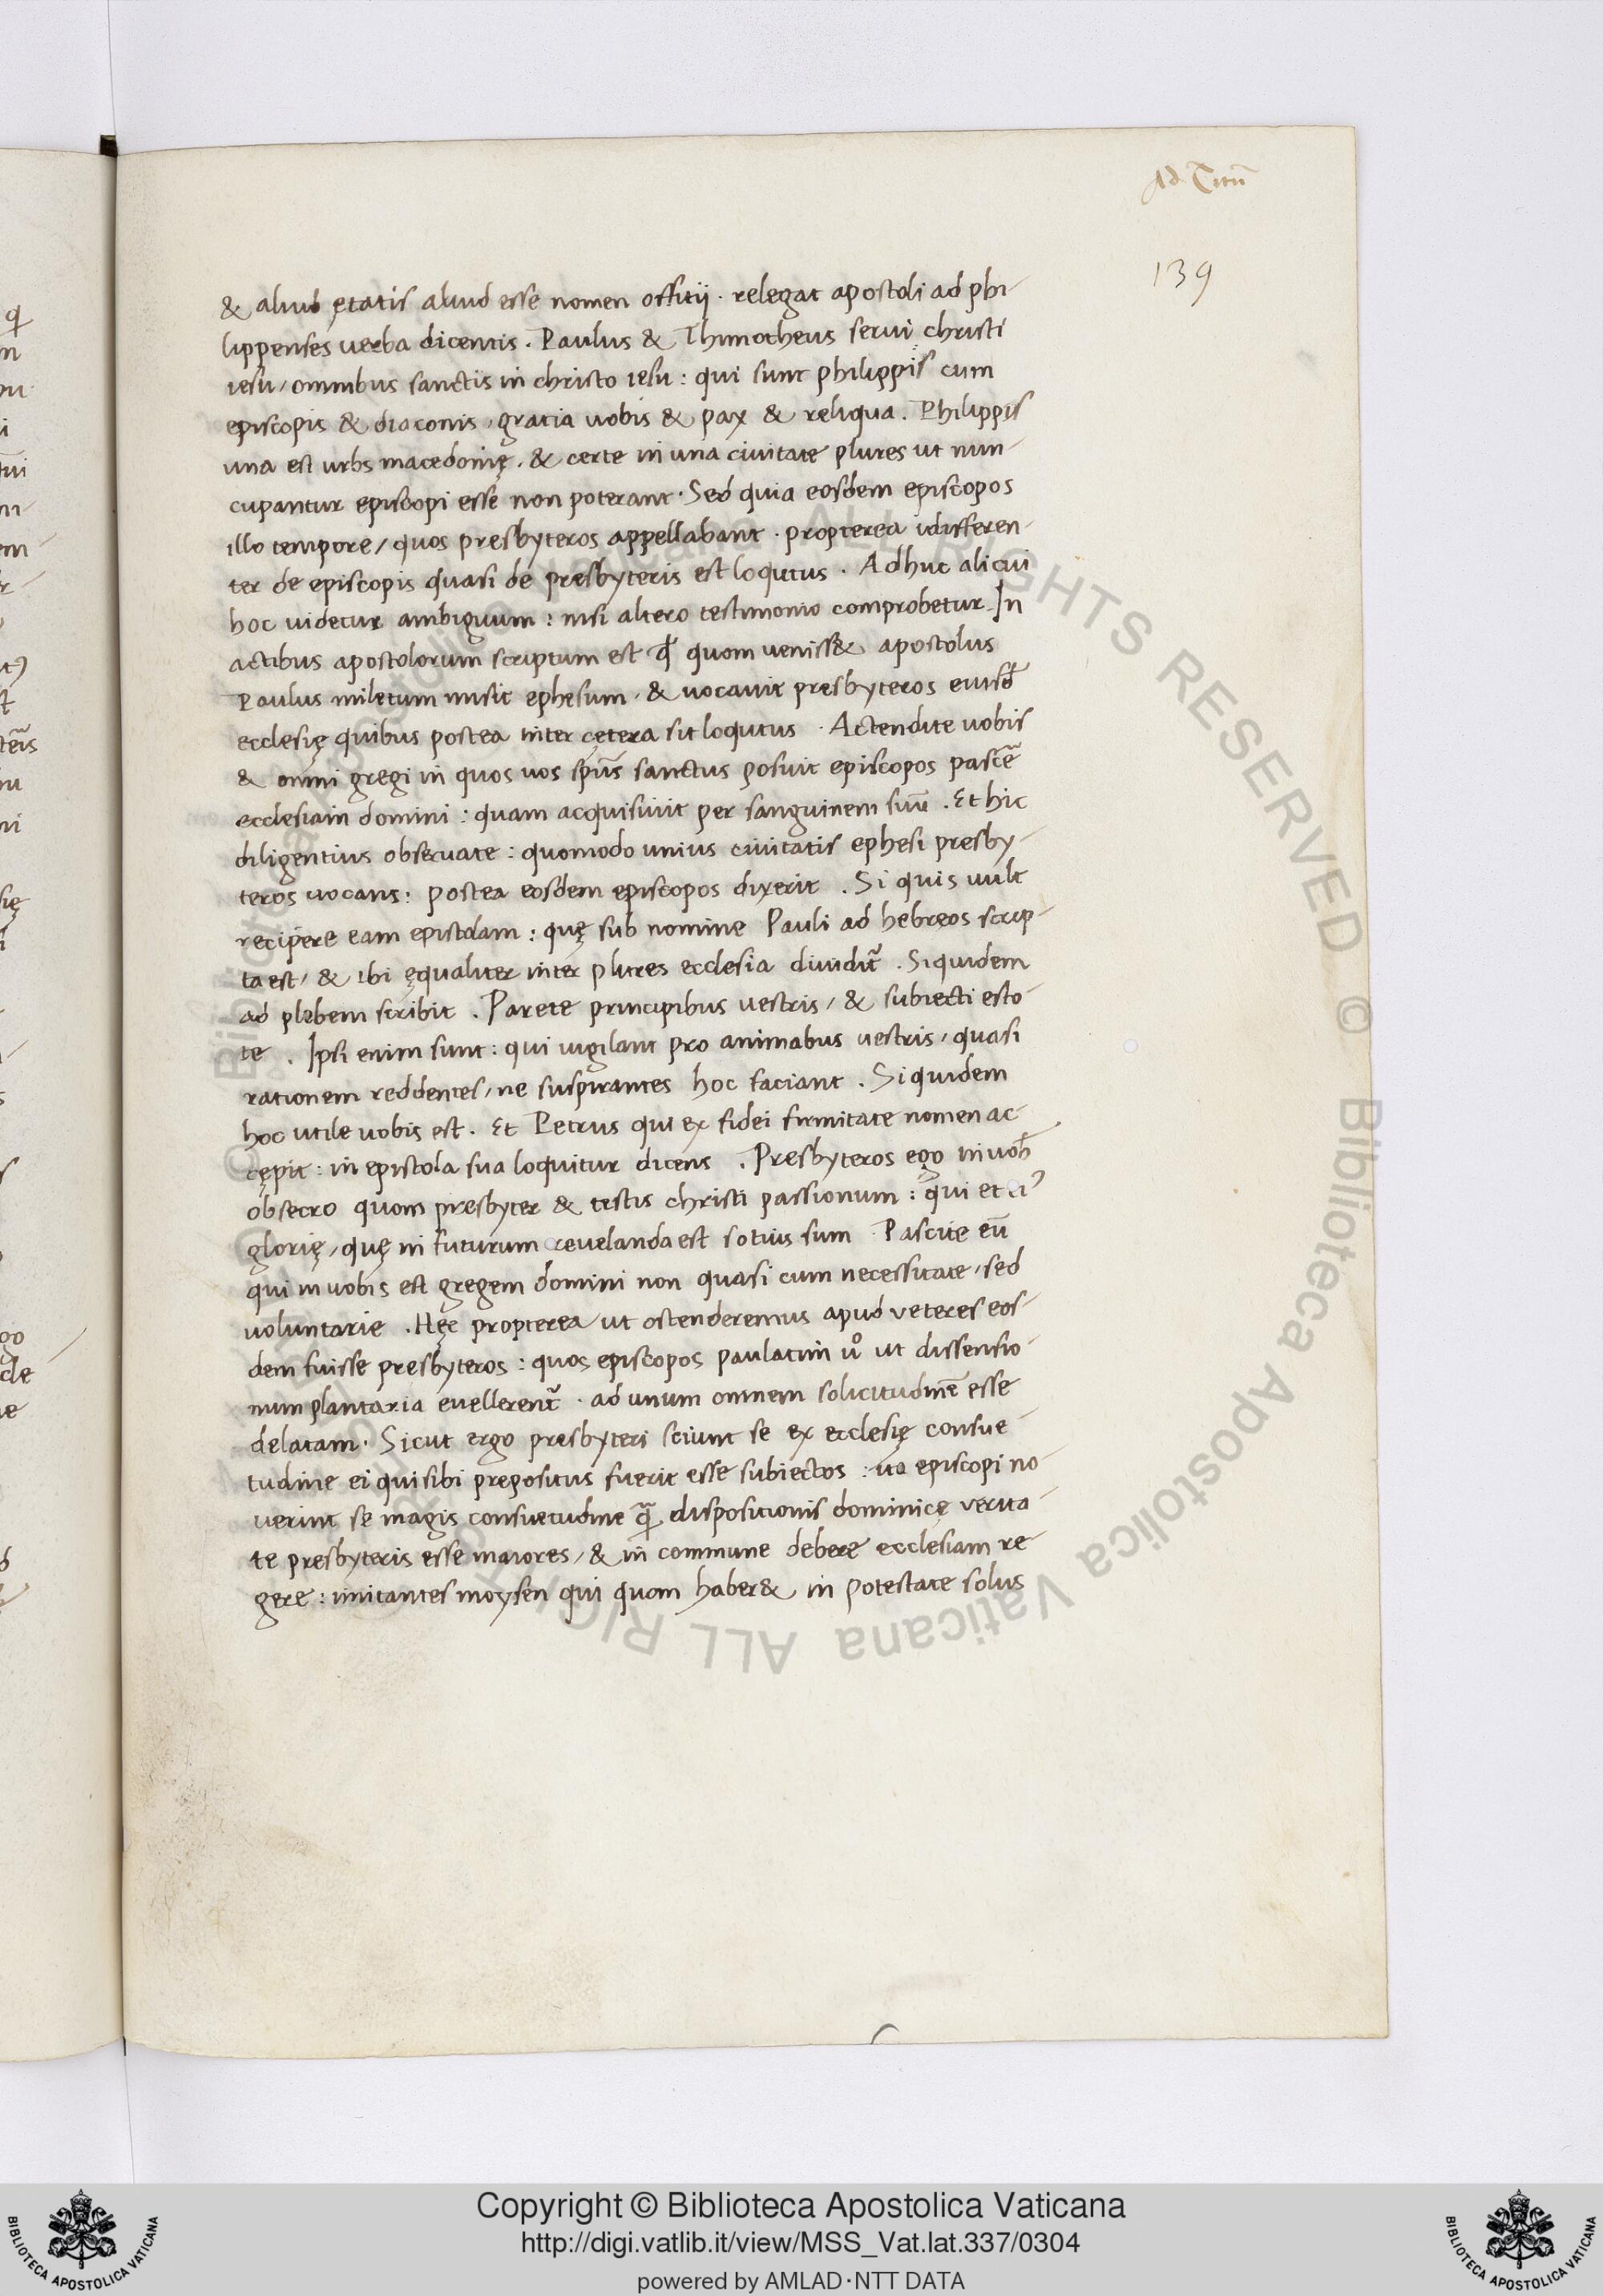 Ad Titū
139
& aliud ętatis aliud esse nomen offitij · relegat apostoli ad phi-
lippenses verba dicentis . Paulus & Thimotheus serui christi
iesu / omnibus sanctis in christo iesu : qui sunt philippis cum
episcopis & diaconis , gratia uobis & pax & reliqua . Philippis
una est urbs macedonię . & certe in una ciuitate plures ut nun-
cupantur episcopi esse non poterant · Sed quia eosdem episcopos
illo tempore / quos presbyteros appellabant · propterea idifferen-
ter de episcopis quasi de presbyteris est loqutus · Adhuc alicui
hoc uidetur ambiguum : nisi altero testimonio comprobetur . In
actibus apostolorum scriptum est qđ quom ueniss& apostolus
Paulus miletum misit ephesum · & uocauit presbyteros eiusđ
ecclesię quibus postea inter cętera sit loqutus · Actendite uobis
& omni gregi in quos uos spūs sanctus posuit episcopos pascē
ecclesiam domini : quam acquisiuit per sanguinem suū . Et hic
diligentius obseruate : quomodo unius ciuitatis ephesi presby-
teros uocans : postea eosdem episcopos dixerit . Si quis uult
recipere eam epistolam : quę sub nomine Pauli ad hebreos scrip-
ta est / & ibi ęqualiter inter plures ecclesia diuidit̃ . Siquidem
ad plebem scribit . Parete principibus uestris / & subiecti esto-
te . Ipsi enim sunt : qui uigilant pro animabus uestris / quasi
rationem reddentes / ne suspirantes hoc faciant . Siquidem
hoc utile uobis est . Et Petrus qui ex fidei firmitate nomen ac-
cępit : in epistola sua loquitur dicens . Presbyteros ego in uob̃
obsecro quom presbyter & testis christi passionum : qui et
glorię / quę in futurum reuelanda est sotius sum Pascite eū
qui in uobis est gregem domini non quasi cum necessitate / sed
uoluntarie . Hęc propterea ut ostenderemus apud veteres eos-
dem fuisse presbyteros : quos episcopos paulatim uº ut dissensio-
num plantaria euellerent̃ · ad unum omnem solicitudinē esse
delatam · Sicut ergo presbyteri sciunt se ex ecclesię consue-
tudine ei qui sibi prepositus fuerit esse subiectos : ita episcopi no-
uerint se magis consuetudine q̃ dispositionis dominicę verita-
te presbyteris esse maiores / & in commune debere ecclesiam re-
gere : imitantes moysen qui quom haber& in potestate solus
© Biblioteca Apostolica Vaticana ALL RIGHTS RESERVED
Copyright © Biblioteca Apostolica Vaticana
http://digi.vatlib.it/view/MSS_Vat.lat.337/0304
powered by AMLAD·NTT DATA
BIBLIOTECA APOSTOLICA VATICANA
BIBLIOTECA APOSTOLICA VATICANA